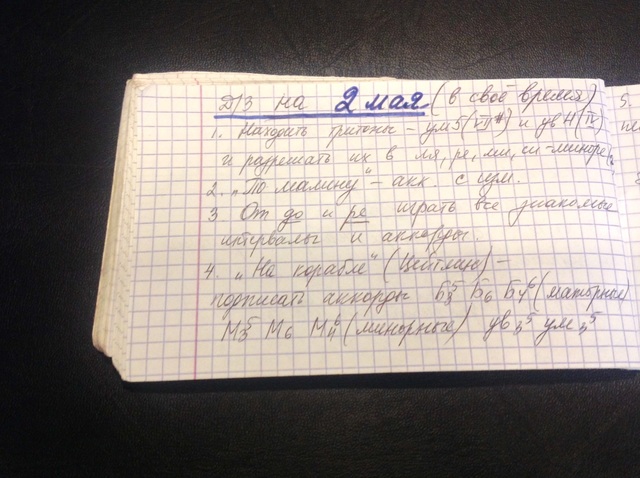 Д/З на 2 мая (в своё время)
1. Находить тритоны - ум5 (VII#) и ув4 (IV)
и разрешать их в ля, ре, ми, си-миноре
2. "По малину" - акк. с
3 От до и ре играть все знакомые
интервалы и аккорды.
4. "На корабле" (Цейтлин) -
подписать аккорды Б53 Б6 Б64 (мажорные)
М53 М6 М64 (минорные) ув 53 ум 53
5.